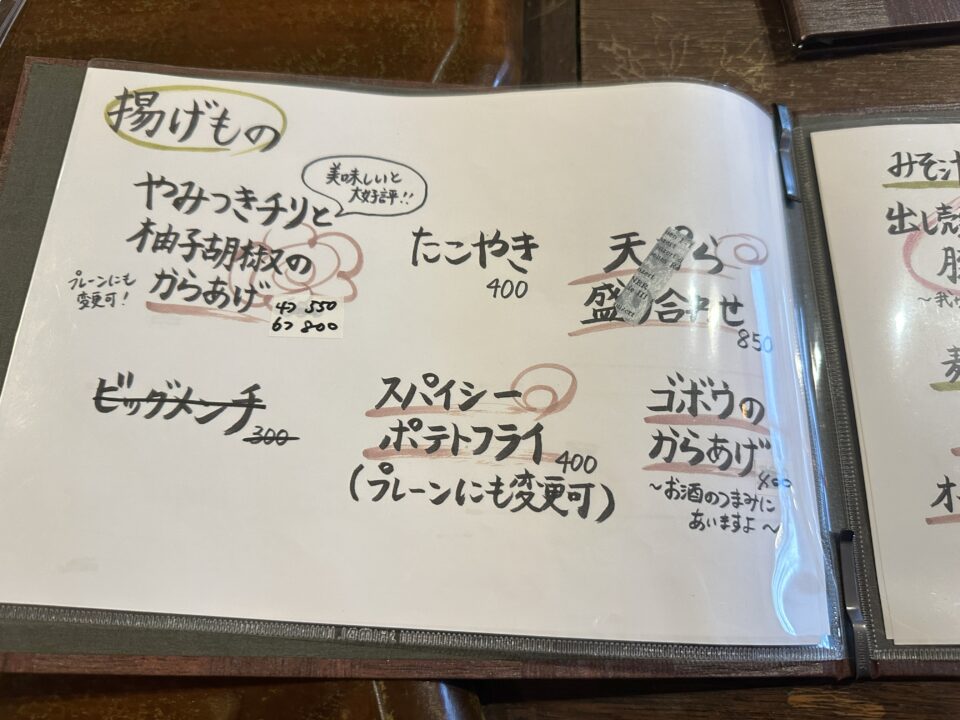 揚げもの
やみつきチリと
柚子胡椒の
からあげ
美味しいと
大好評!!
プレーンにも
変更可!
4つ 550
6つ 800
たこやき
400
天ぷら
盛り合わせ
850
ビッグメンチ
300
スパイシー
ポテトフライ
400
(プレーンにも変更可)
ゴボウの
からあげ
400
~お酒のつまみに
あいますよ~
みそ汁
出し殻